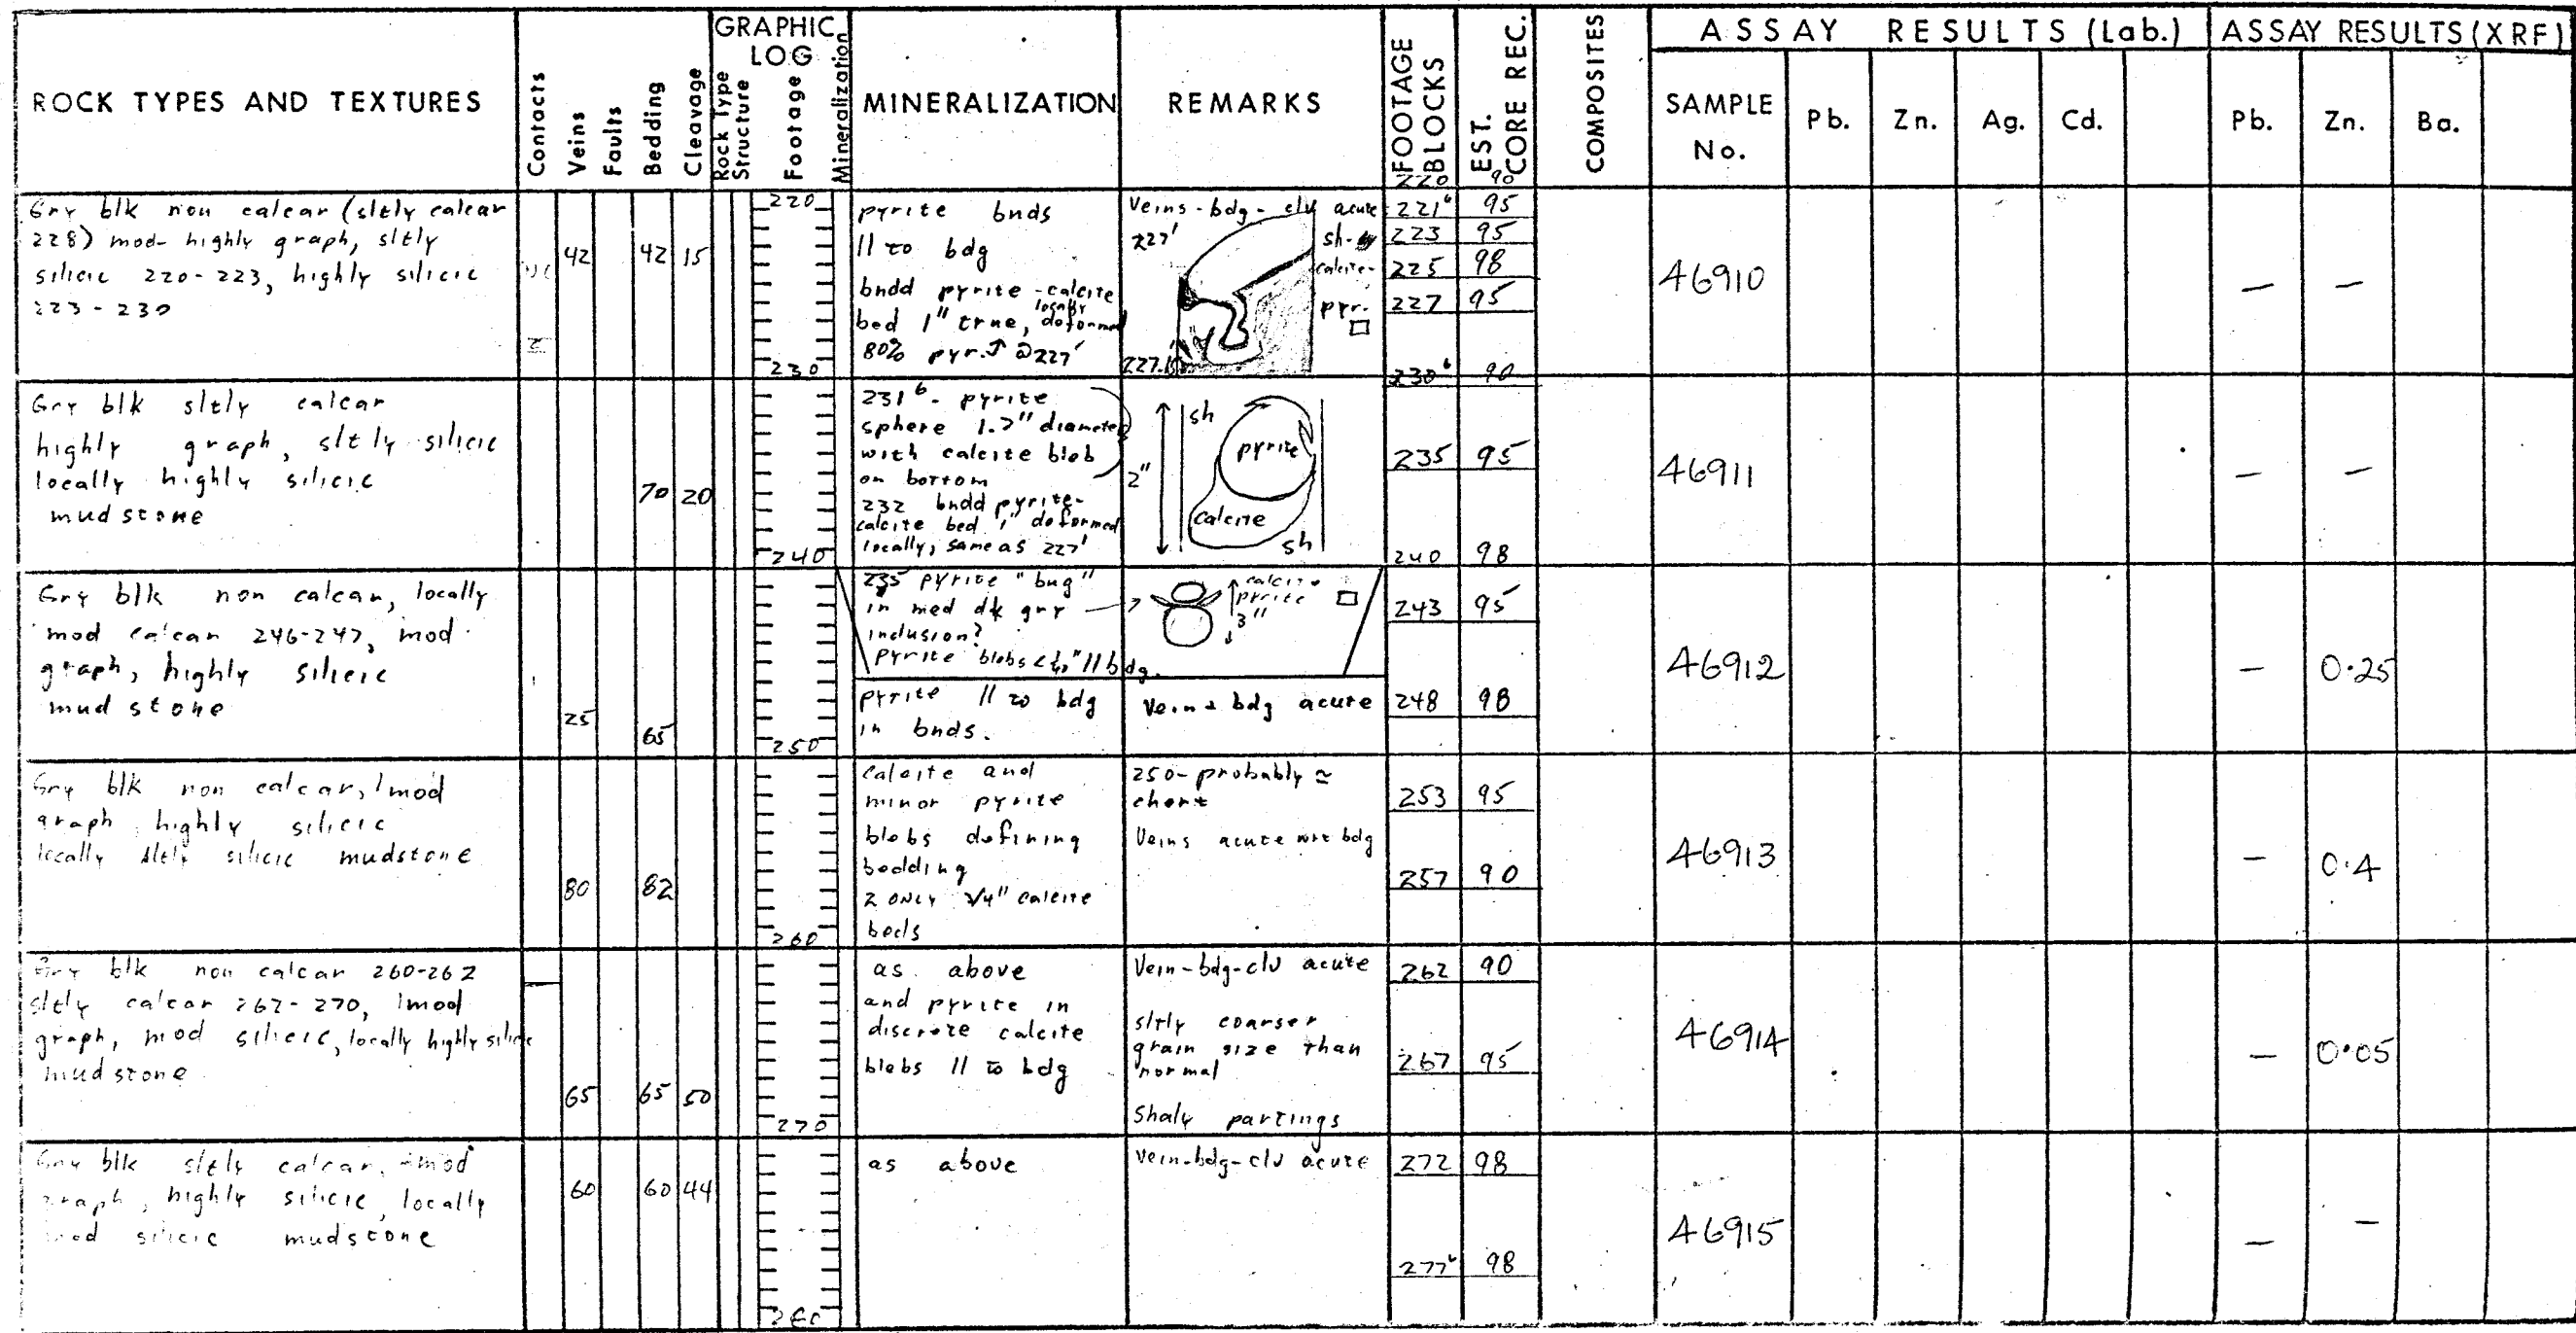 ROCK TYPES AND TEXTURES
Contacts
Veins
Faults
Bedding
Cleavage
GRAPHIC LOG
Rock Type
Structure
Footage
Mineralization
MINERALIZATION
REMARKS
FOOTAGE BLOCKS
EST. CORE REC.
COMPOSITES
ASSAY RESULTS (Lab.)
SAMPLE No.
Pb.
Zn.
Ag.
Cd.
ASSAY RESULTS (XRF)
Pb.
Zn.
Ba.
220 90
Gry blk non calcar (sltly calcar
228) mod-highly graph, sltly
silicic 220-223, highly silicic
223-230
42 42 15
220
230
pyrite bnds
// to bdg
bndd pyrite-calcite
bed 1" true, locally deformed
80% pyr. @227'
Veins-bdg-clv acute
227'
sh-
calcite-
pyr.
221⁶ 95
223 95
225 98
227 95
230⁶ 90
46910
— —
Gry blk sltly calcar
highly graph, sltly silicic
locally highly silicic
mudstone
70 20
240
231⁶- pyrite
sphere 1.2" diameter
with calcite blob
on bottom
232 bndd pyrite-
calcite bed 1" deformed
locally, same as 227'
2"
sh
pyrite
calcite
sh
235 95
240 98
46911
— —
Gry blk non calcar, locally
mod calcar 246-247, mod
graph, highly silicic
mudstone
25 65
250
235 pyrite "bug"
in med dk gry
inclusion?
pyrite blobs // bdg.
calcite
pyrite
3"
pyrite // to bdg
in bnds.
Vein + bdg acute
243 95
248 98
46912
— 0.25
Gry blk non calcar, mod
graph, highly silicic
locally sltly silicic mudstone
80 82
260
calcite and
minor pyrite
blobs defining
bedding
2 ONLY 3/4" calcite
beds
250-probably ≃
chert
Veins acute wrt bdg
253 95
257 90
46913
— 0.4
Gry blk non calcar 260-262
sltly calcar 262-270, mod
graph, mod silicic, locally highly silicic
mudstone
65 65 50
270
as above
and pyrite in
discrete calcite
blobs // to bdg
Vein-bdg-clv acute
sltly coarser
grain size than
normal
Shaly partings
262 90
267 95
46914
— 0.05
Gry blk sltly calcar, mod
graph, highly silicic, locally
mod silicic mudstone
60 60 44
as above
Vein-bdg-clv acute
272 98
277⁶ 98
46915
— —